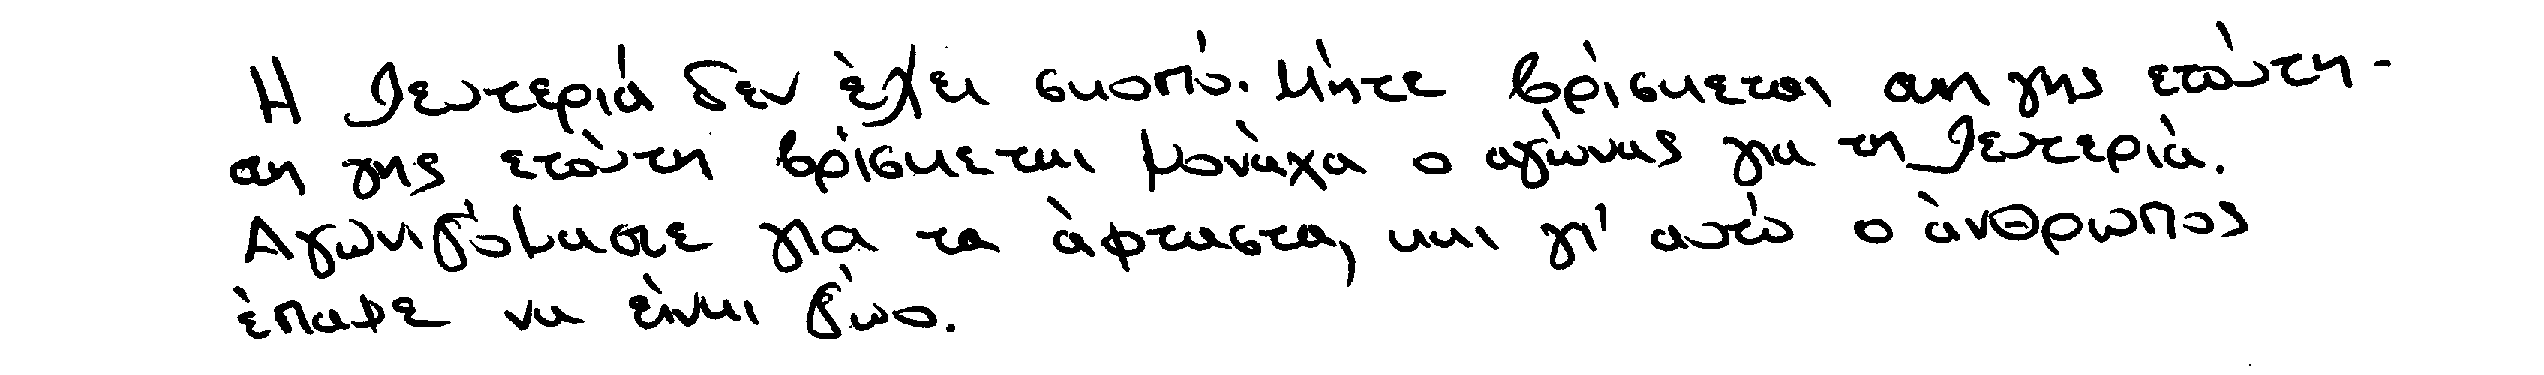 Η λευτεριά δεν έχει σκοπό. Μήτε βρίσκεται στη γης ετούτη -
στη γης ετούτη βρίσκεται μονάχα ο αγώνας για τη λευτεριά.
Αγωνιζόμαστε για τα άφταστα, και γι' αυτό ο άνθρωπος
έπαψε να είναι ζώο.